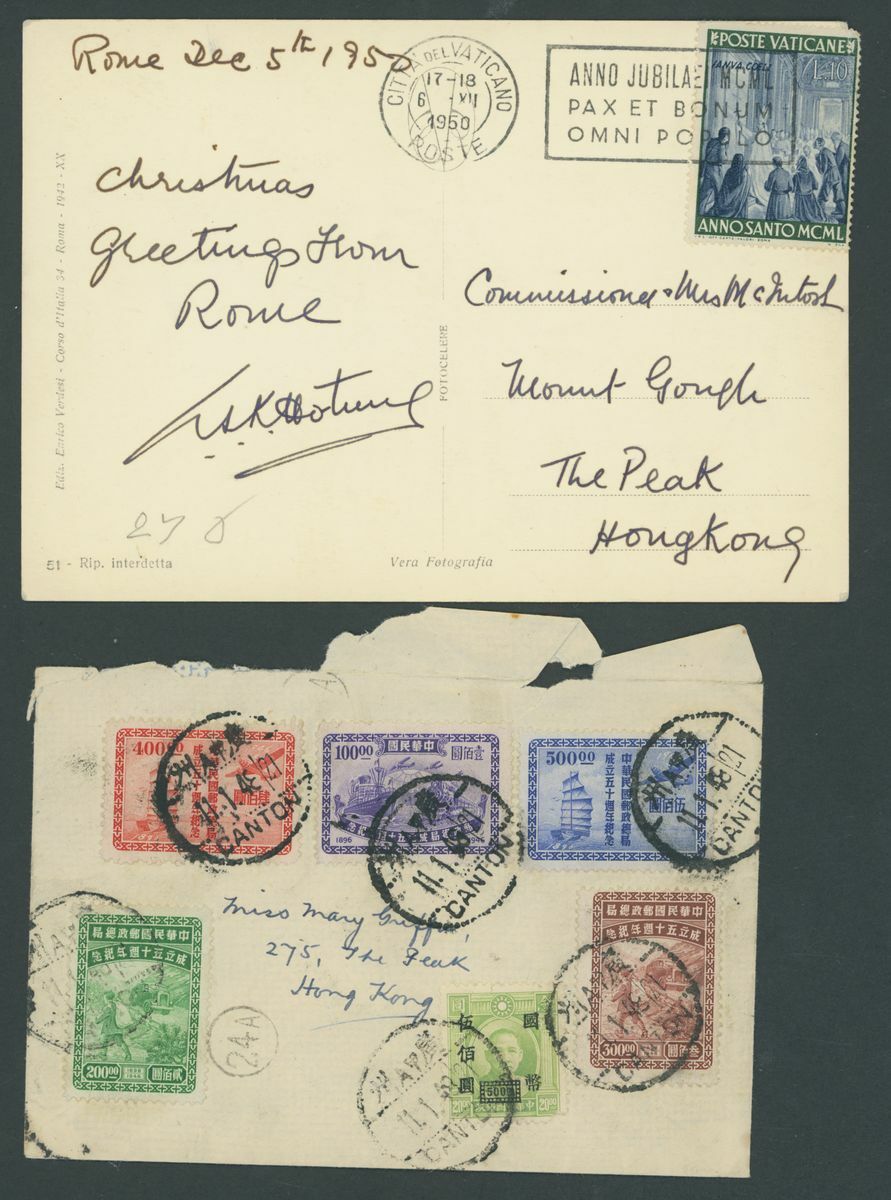 Rome Dec 5th 1950
CITTÀ DEL VATICANO
17-18
6 XII
1950
POSTE
ANNO JUBILAEI MCML
PAX ET BONUM
OMNI POPULO
POSTE VATICANE
IANVA COELI
L.10
ANNO SANTO MCML
Christmas
Greetings From
Rome
Commissioner & Mrs McIntosh
Mount Gough
The Peak
HongKong
Ediz. Enrico Verdesi - Corso d'Italia 34 - Roma - 1942 - XX
FOTOCELERE
51 - Rip. interdetta
Vera Fotografia
400.00
CANTON
11.1.48
中華民國郵政總局
100.00
壹佰圓
1896
CANTON
11.1.48
500.00
中華民國郵政總局
成立五十週年紀念
伍佰圓
CANTON
11.1.48
中華民國郵政總局
成立五十週年紀念
200.00
貳佰圓
Miss Mary Griffin,
275, The Peak
Hong Kong
24A
國幣
伍佰圓
500
20.00
20.00
CANTON
11.1.48
中華民國郵政總局
成立五十週年紀念
300.00
叁佰圓